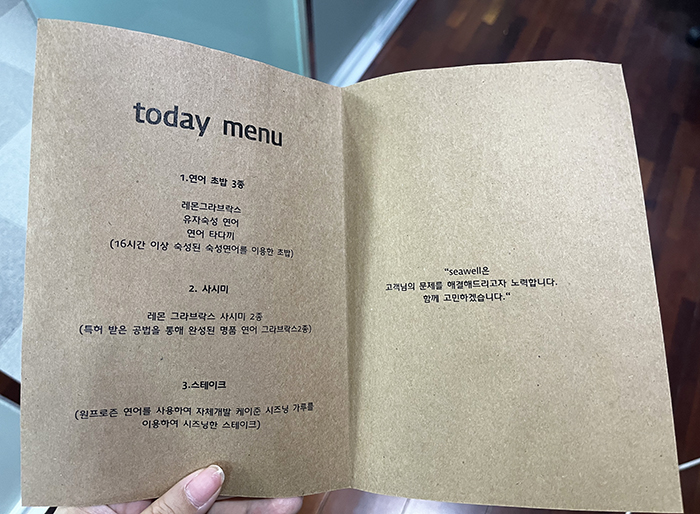 today menu
1.연어 초밥 3종
레몬그라브락스
유자숙성 연어
연어 타다끼
(16시간 이상 숙성된 숙성연어를 이용한 초밥)
2. 사시미
레몬 그라브락스 사시미 2종
(특허 받은 공법을 통해 완성된 명품 연어 그라브락스2종)
3.스테이크
(원프로즌 연어를 사용하여 자체개발 케이준 시즈닝 가루를
이용하여 시즈닝한 스테이크)
"seawell은
고객님의 문제를 해결해드리고자 노력합니다.
함께 고민하겠습니다."